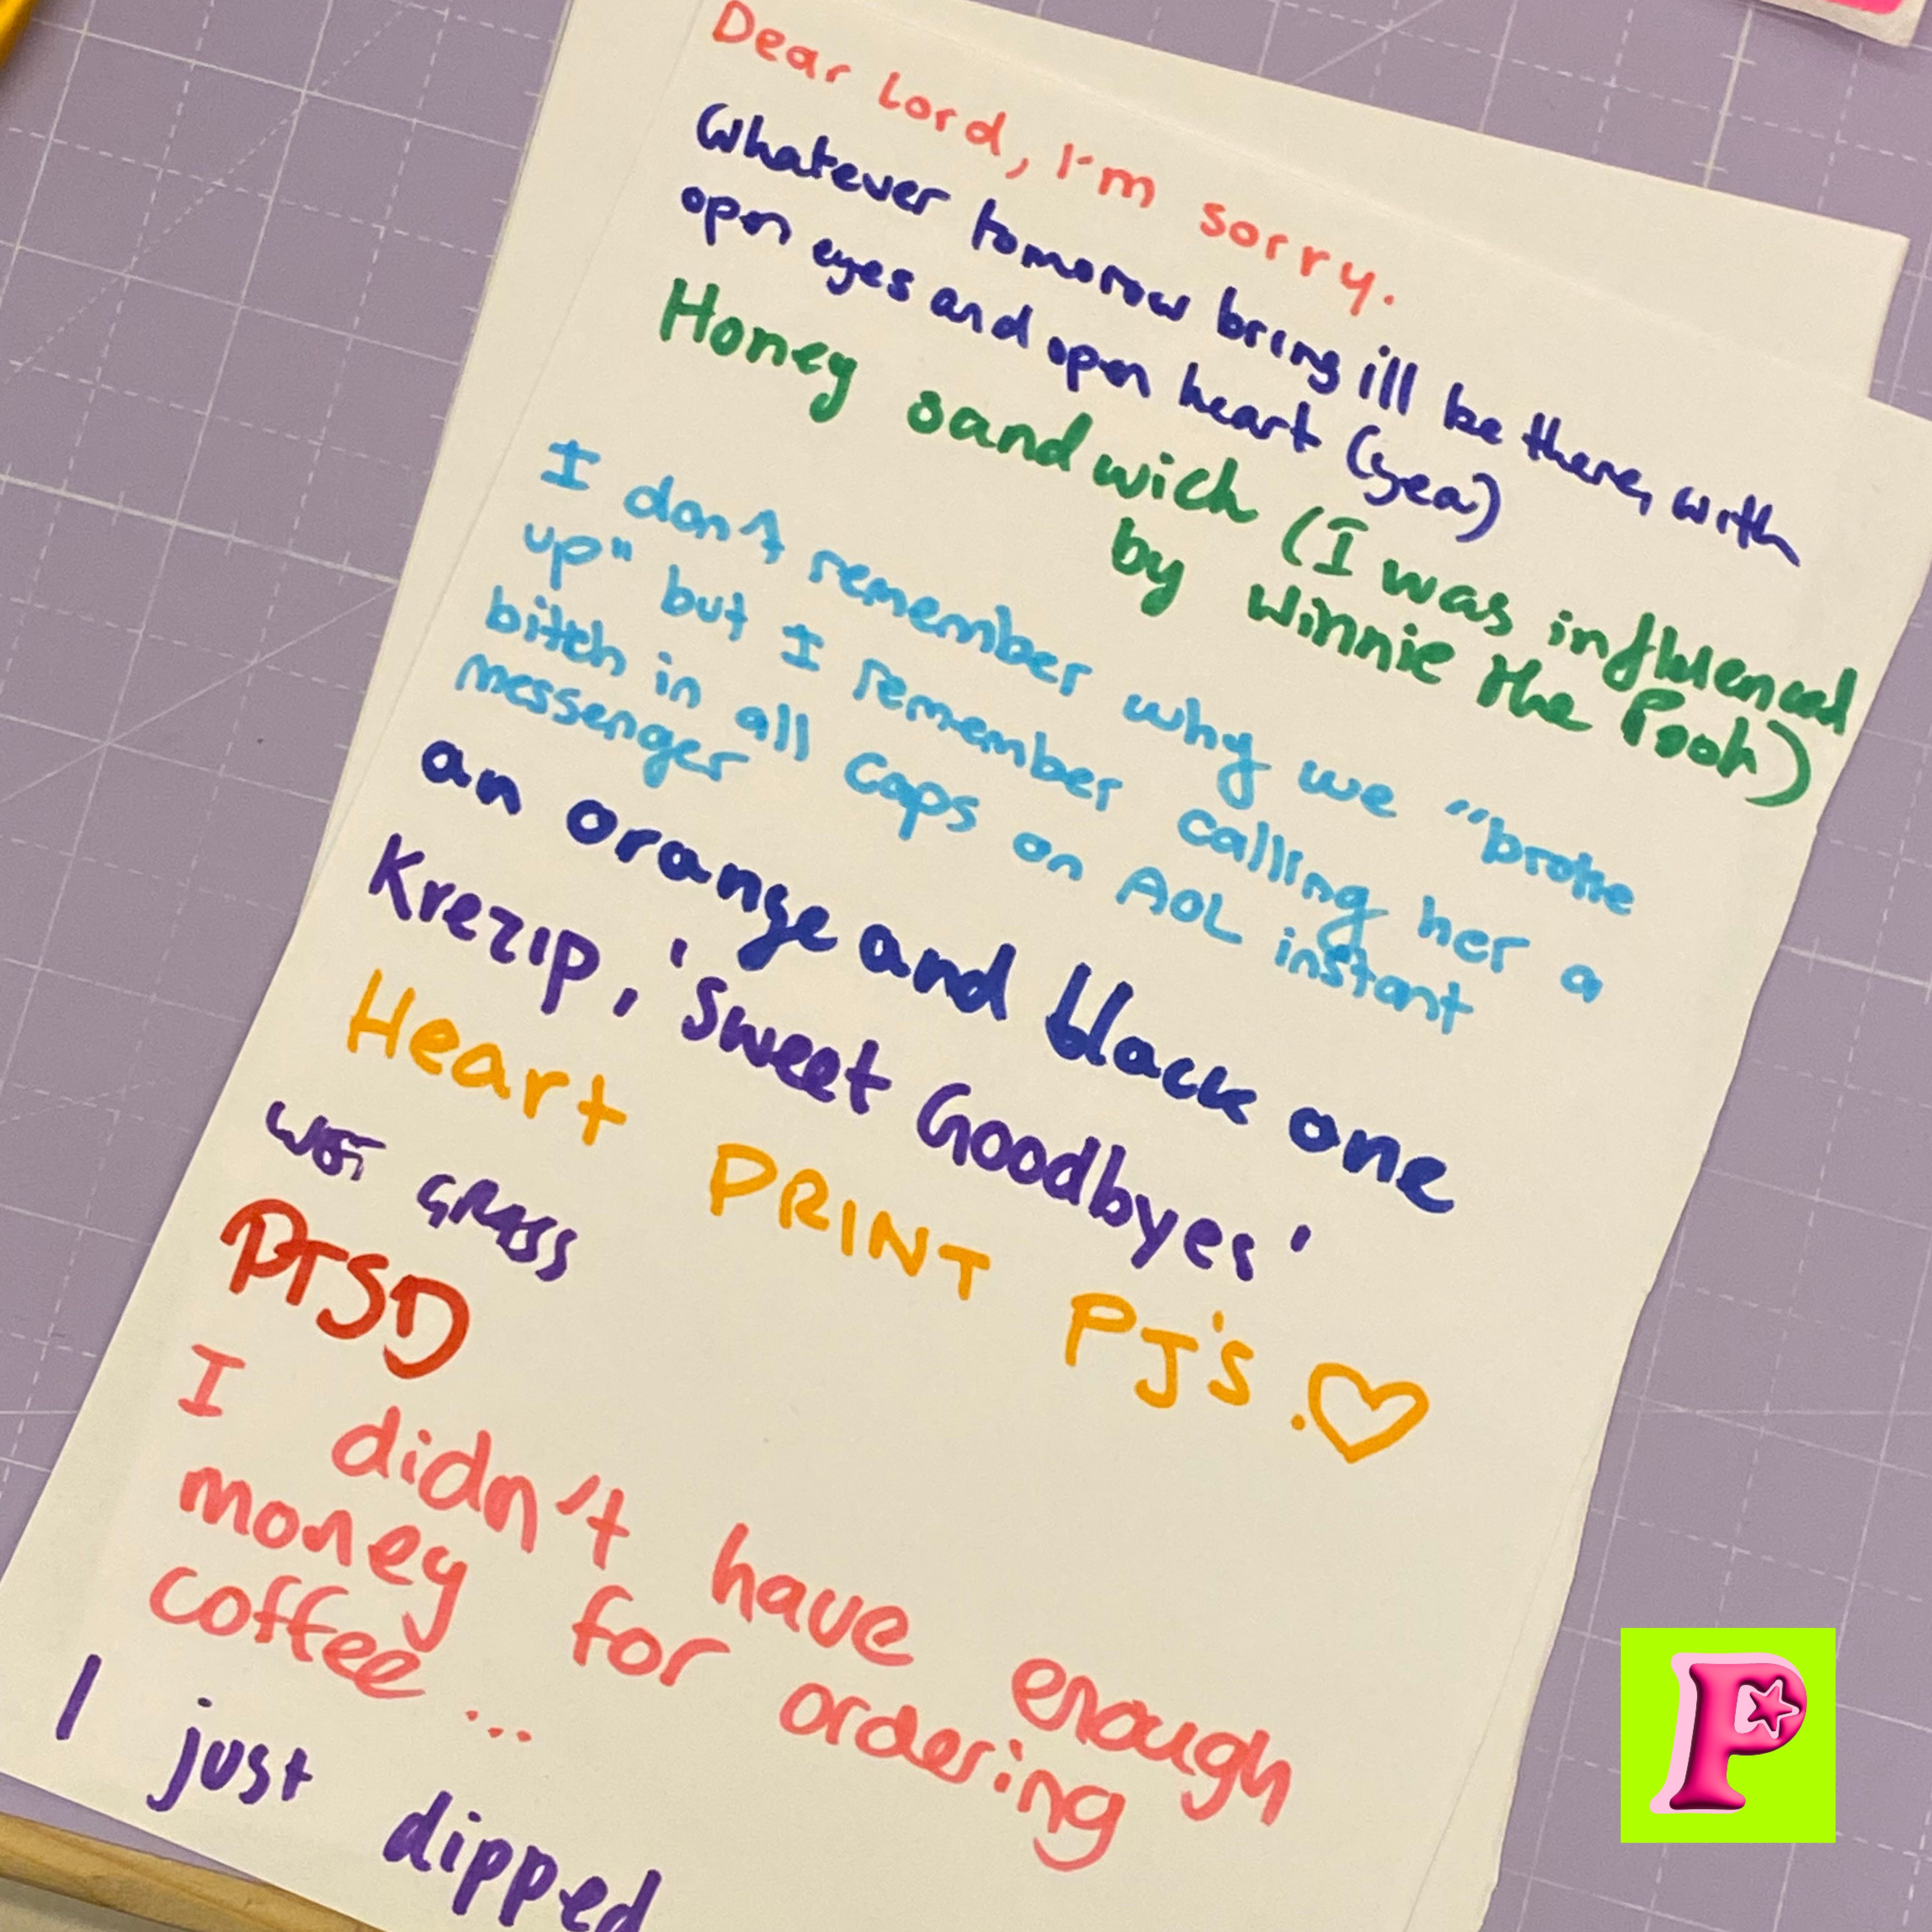 Dear Lord, I'm sorry.
Whatever tomorow bring ill be there, with
open eyes and open heart (yea)
Honey sandwich (I was influenced
by Winnie the Pooh)
I don't remember why we "broke
up" but I remember calling her a
bitch in all caps on AOL instant
messenger
an orange and black one
Krezip, 'Sweet Goodbyes'
Heart PRINT PJ'S.♡
WET GRASS
PTSD
I didn't have enough
money for ordering
coffee...
I just dipped
P